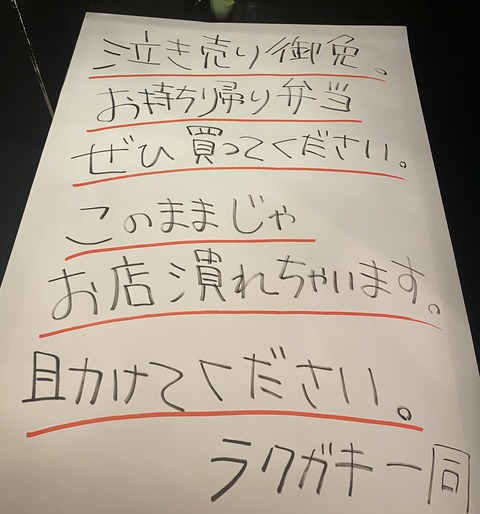 泣き売り御免。
お持ちり帰り弁当
ぜひ買ってください。
このままじゃ
お店潰れちゃいます。
助けてください。
ラクガキ一同